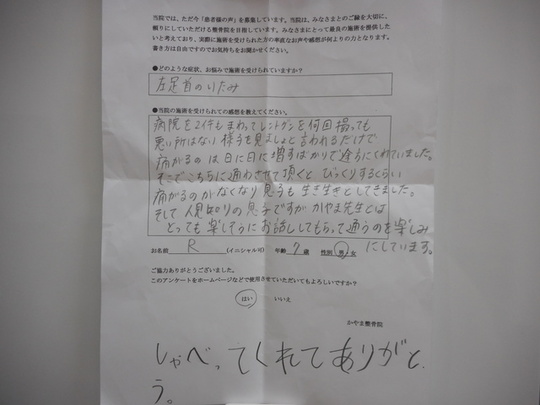 当院では、ただ今「患者様の声」を募集しています。当院は、みなさまとのご縁を大切に、
頼りにしていただける整骨院を目指しています。みなさまにとって最良の施術を提供した
いと考えており、実際に施術を受けられた方の率直なお声や感想が何よりの力となります。
書き方は自由ですのでお気持ちをお聞かせください。
●どのような症状、お悩みで施術を受けられていますか?
左足首のいたみ
●当院の施術を受けられての感想を教えてください。
病院を2件もまわってレントゲンを何回撮っても
悪い所はない様子を見ましょと言われるだけで
痛がるのは日に日に増すばかりで途方にくれていました。
そこでこちらに通わせて頂くとびっくりするくらい
痛がるのがなくなり息子も生き生きとしてきました。
そして人見知りの息子ですがかやま先生とは
とっても楽しそうにお話ししてもらって通うのを楽しみ
にしています。
お名前 R (イニシャル可) 年齢 7 歳 性別 男 女
ご協力ありがとうございました。
このアンケートをホームページなどで使用させていただいてもよろしいですか?
はい いいえ
かやま整骨院
しゃべってくれてありがと
う。